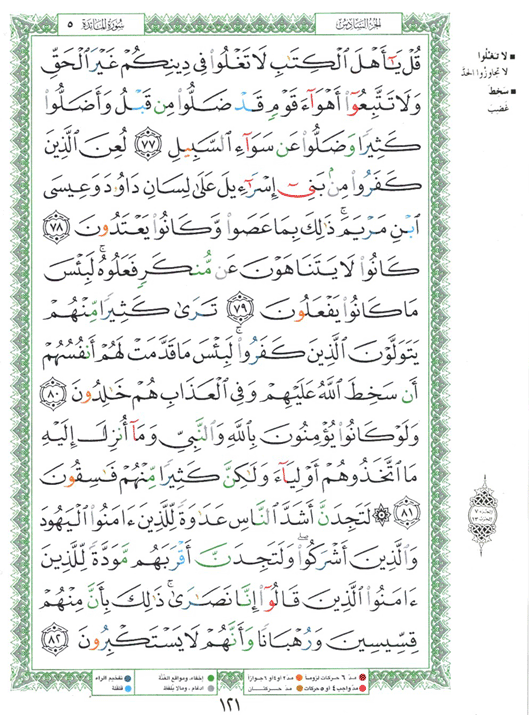 الجزء السادس
سورة المائدة ٥
قُلْ يَٰٓأَهْلَ ٱلْكِتَٰبِ لَا تَغْلُوا۟ فِى دِينِكُمْ غَيْرَ ٱلْحَقِّ
وَلَا تَتَّبِعُوٓا۟ أَهْوَآءَ قَوْمٍ قَدْ ضَلُّوا۟ مِن قَبْلُ وَأَضَلُّوا۟
كَثِيرًا وَضَلُّوا۟ عَن سَوَآءِ ٱلسَّبِيلِ ٧٧ لُعِنَ ٱلَّذِينَ
كَفَرُوا۟ مِنۢ بَنِىٓ إِسْرَٰٓءِيلَ عَلَىٰ لِسَانِ دَاوُۥدَ وَعِيسَى
ٱبْنِ مَرْيَمَ ۚ ذَٰلِكَ بِمَا عَصَوا۟ وَّكَانُوا۟ يَعْتَدُونَ ٧٨
كَانُوا۟ لَا يَتَنَاهَوْنَ عَن مُّنكَرٍ فَعَلُوهُ ۚ لَبِئْسَ
مَا كَانُوا۟ يَفْعَلُونَ ٧٩ تَرَىٰ كَثِيرًا مِّنْهُمْ
يَتَوَلَّوْنَ ٱلَّذِينَ كَفَرُوا۟ ۚ لَبِئْسَ مَا قَدَّمَتْ لَهُمْ أَنفُسُهُمْ
أَن سَخِطَ ٱللَّهُ عَلَيْهِمْ وَفِى ٱلْعَذَابِ هُمْ خَٰلِدُونَ ٨٠
وَلَوْ كَانُوا۟ يُؤْمِنُونَ بِٱللَّهِ وَٱلنَّبِىِّ وَمَآ أُنزِلَ إِلَيْهِ
مَا ٱتَّخَذُوهُمْ أَوْلِيَآءَ وَلَٰكِنَّ كَثِيرًا مِّنْهُمْ فَٰسِقُونَ
٨١ ۞ لَتَجِدَنَّ أَشَدَّ ٱلنَّاسِ عَدَٰوَةً لِّلَّذِينَ ءَامَنُوا۟ ٱلْيَهُودَ
وَٱلَّذِينَ أَشْرَكُوا۟ ۖ وَلَتَجِدَنَّ أَقْرَبَهُم مَّوَدَّةً لِّلَّذِينَ
ءَامَنُوا۟ ٱلَّذِينَ قَالُوٓا۟ إِنَّا نَصَٰرَىٰ ۚ ذَٰلِكَ بِأَنَّ مِنْهُمْ
قِسِّيسِينَ وَرُهْبَانًا وَأَنَّهُمْ لَا يَسْتَكْبِرُونَ ٨٢
لا تغلوا
لا تجاوزوا الحدّ
سخط
غضب
مدّ ٦ حركات لزوماً
مدّ ٢ أو ٤ أو ٦ جوازاً
مدّ واجب ٤ أو ٥ حركات
مدّ حركتان
إخفاء، ومواقع الغنّة
إدغام، وما لا يلفظ
تفخيم الراء
قلقلة
١٢١